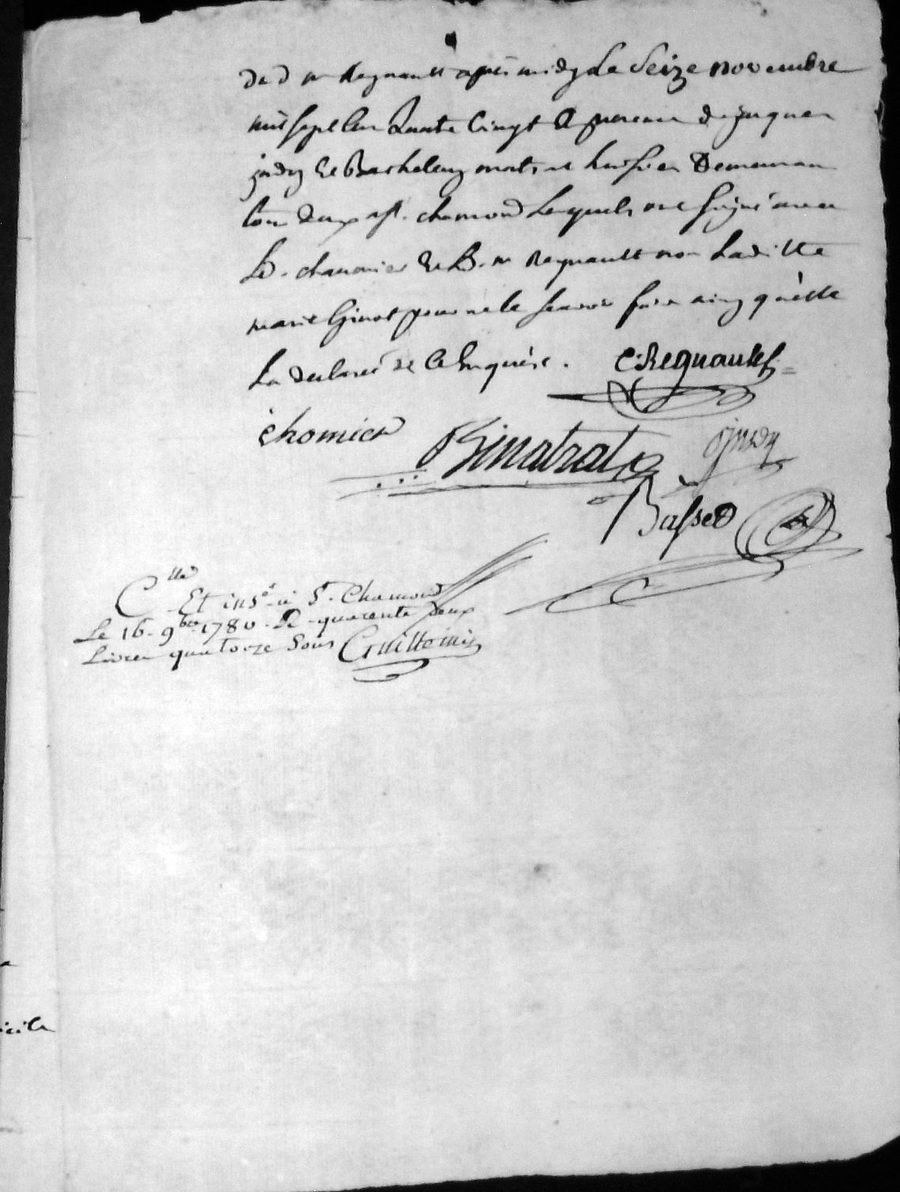 dud mr Regnault après midy le Seize novembre
mil sept cen quatre vingt en presence de jacques
et Barthelemy huissier Demeuran
tous deux a St. chamond lesquels ont signé avec
led. chaumier et led. mr Regnault non laditte
marie Ginot pour ne le scavoir faire ainsy quelle
la declaré de ce enquise. C. Regnault
chomier Binatrat judy
Basset
Clle Et ins.é à St. Chamond
Le 16 9bre 1780 R quarente deux
Livres quatorze Sous Guillemin